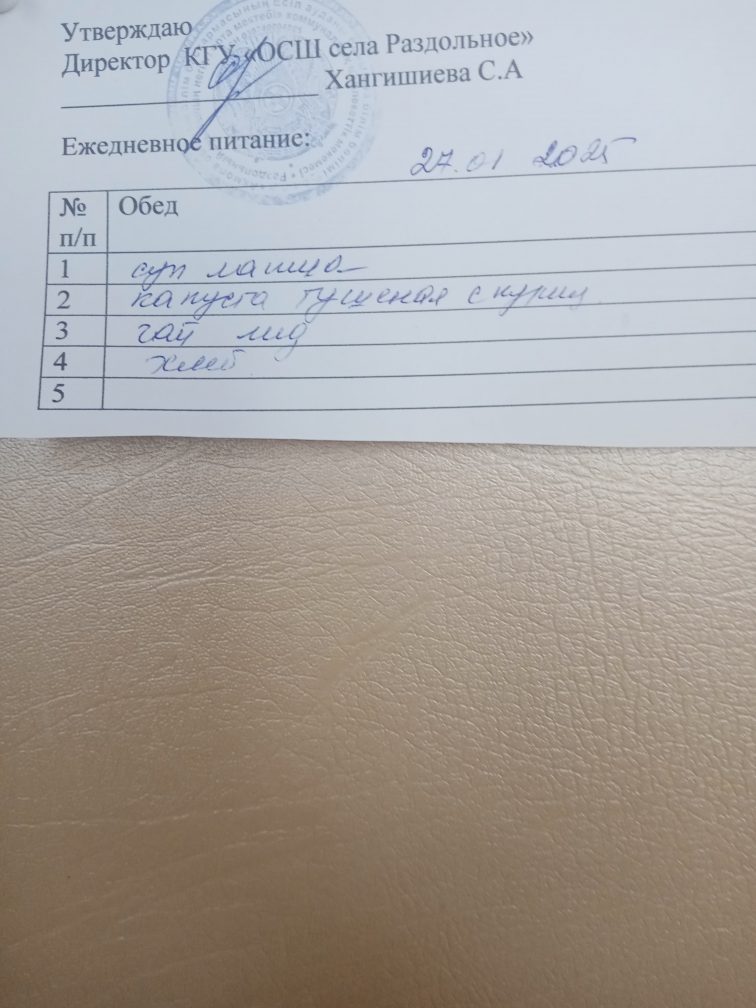 Утверждаю
Директор КГУ «ОСШ села Раздольное»
Хангишиева С.А
Ежедневное питание:
27.01 2025
№ п/п Обед
1 суп лапша
2 капуста тушеная с куриц
3 чай
4 хлеб
5